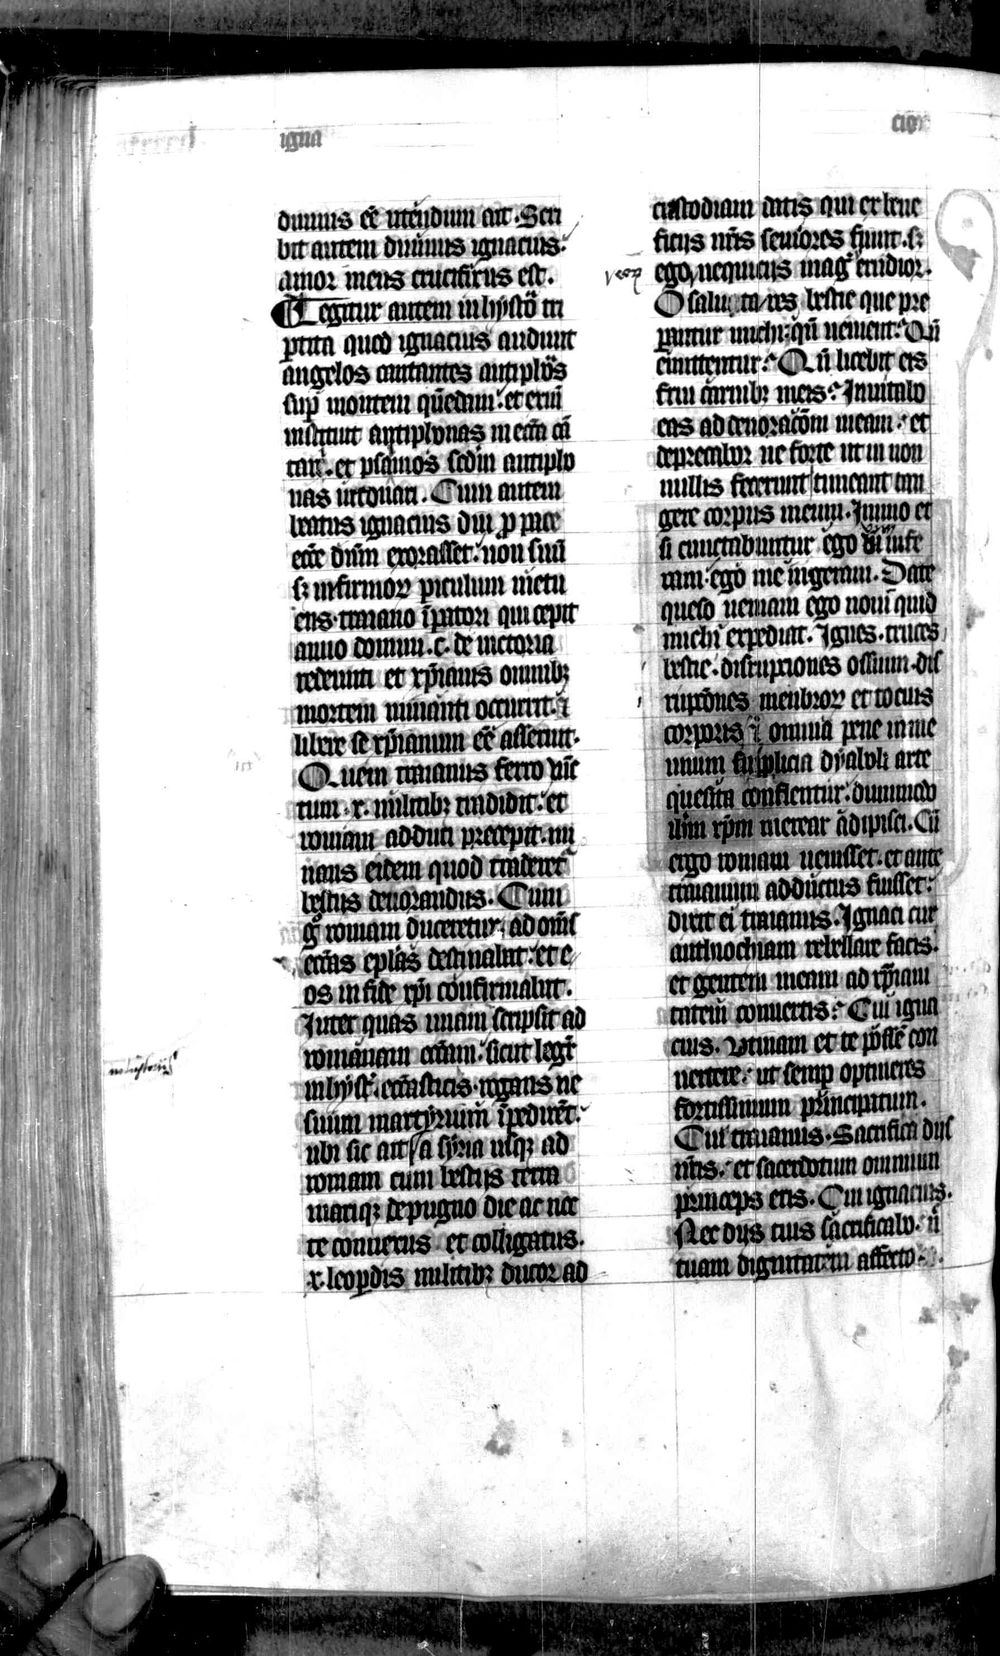 igna
cio
diuius eē utendum ait. Scri
bit autem diuinus ignacius.
amor meus crucifixus est.
Legitur autem in hystōᵃ tri
ꝑtita quod ignacius audiuit
angelos cantantes antiphōs
suꝑ montem quēdam. et exīn
instituit antiphonas in ecc̄ia cā
tari. et psalmos sedm antipho
nas intonari. Cum autem
beatus ignacius diu ꝓ pace
ecc̄e dn̄m exorasset. non suū
sꝫ infirmoꝝ ꝑiculum metu
ens. traiano īꝑatori qui cepit
anno domini .c. de uictoria
redeunti et xp̄ianis omnibꝫ
mortem minanti occurrit. ⁊
libere se xp̄ianum eē asseruit.
Quem traianus ferro vīc
tum .x. militibꝫ tradidit. et
romam adduci precepit. mi
nans eidem quod traderet᷑
bestijs deuorandus. Cum
gᵒ romam duceretur, ad om̄s
ecc̄ias ep̄las destinabat. et e
os in fide xp̄i confirmabat.
Inter quas unam scripsit ad
romanam ecc̄iam. sicut legit᷑
in hyst̄. ecc̄iasticis. rogans ne
suum martyrium īpedirēt.
ubi sic ait / a syria usqꝫ ad
romam cum bestijs terra
mariqꝫ depugno die ac noc
te conuexus et colligatus.
x. leoꝑdis militibꝫ ducor ad
ministerijs
custodiam datis qui ex bene
ficijs nr̄is seuiores fiunt. sꝫ
ego nequicijs mag̉ erudior.
O salutares bestie que pre
parantur michi. qn̄ uenient. Qn̄
emittentur. Qn̄ licebit eis
frui carnibꝫ meis. Inuitabo
eas ad deuoracōm meam. et
deprecabor ne forte ut in non
nullis fecerunt timeant tan
gere corpus meum. Immo et
si cunctabuntur ego vim infe
ram. ego me ingeram. Date
queso ueniam ego noui quid
michi expediat. Ignes. cruces
bestie. disrupciones ossium. dis
rupcōnes menbroꝝ et tocius
corporis ⁊ omnia pene in me
unum supplicia dyaboli arte
quesita conflentur. dummodo
ihm xp̄m merear adipisci. Cū
ergo romam uenisset. et ante
traianum adductus fuisset.
dixit ei traianus. Ignaci cur
anthiochiam rebellare facis.
et gentem meam ad xp̄iani
tatem conuertis. Cui igna
cius. Utinam et te possē con
uertere. ut semꝑ optineres
fortissimum principatum.
Cui traianus. Sacrifica dijs
nr̄is. et sacerdotum omnium
princeps eris. Cui ignacius.
Nec dijs tuis sacrificabo. n̄
tuam dignitatem affecto.